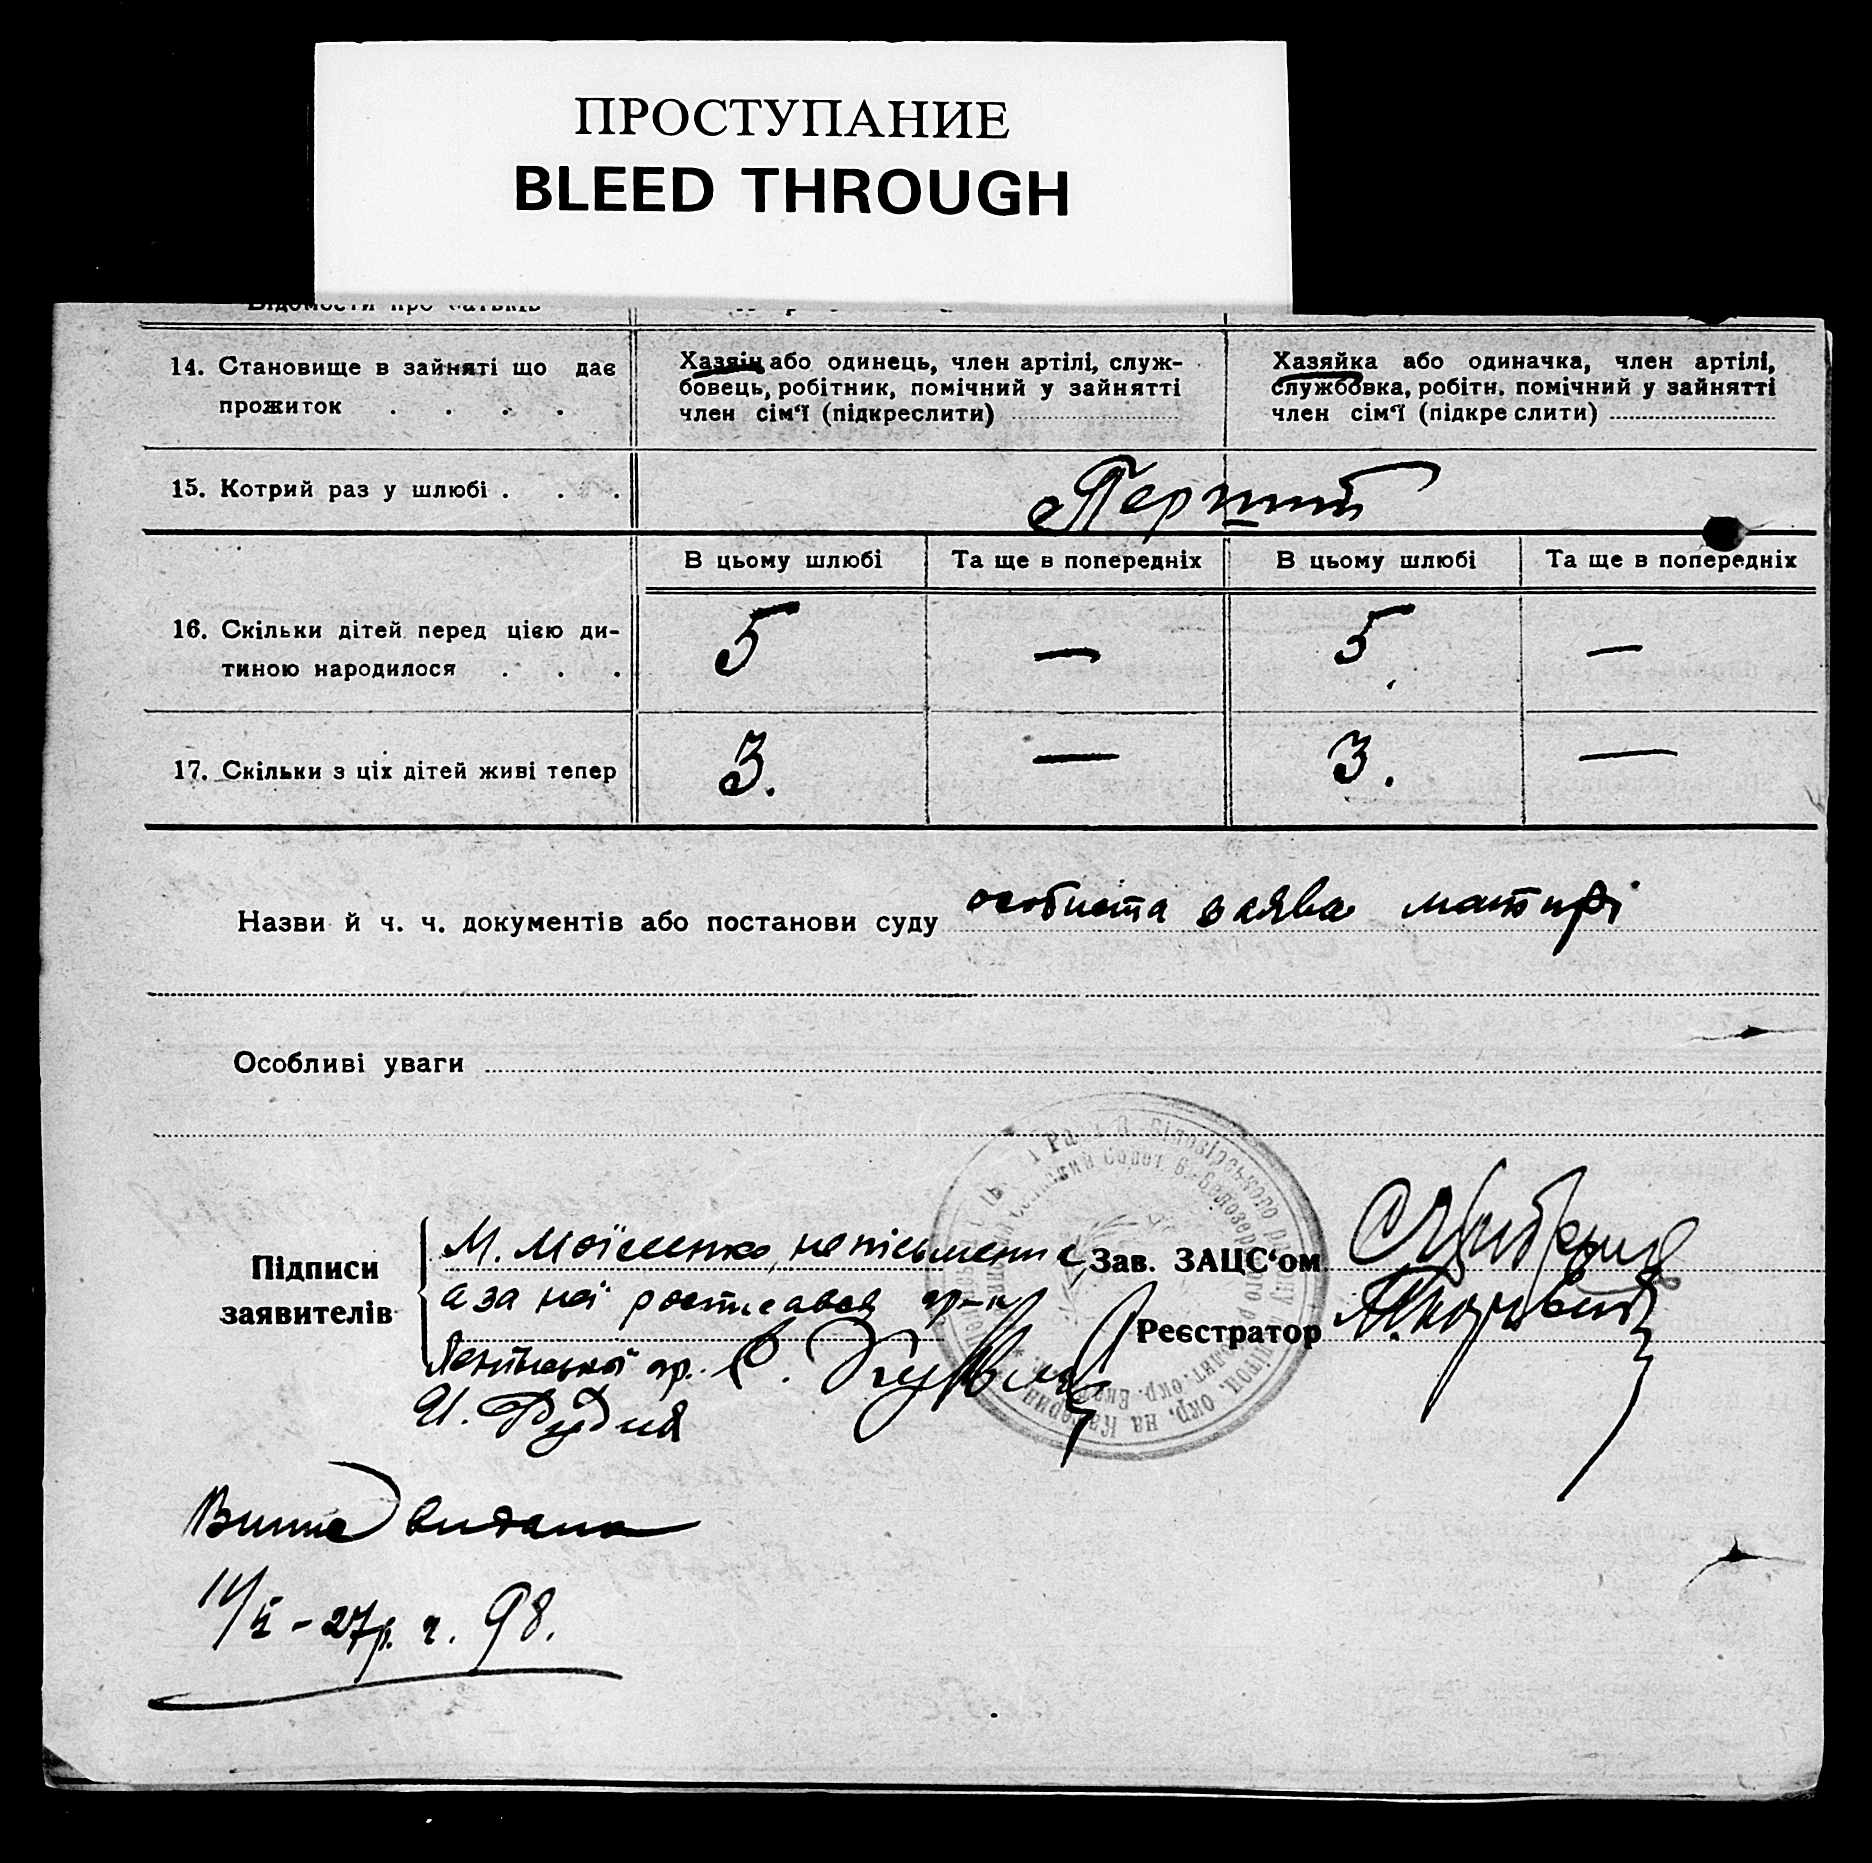 ПРОСТУПАНИЕ
BLEED THROUGH
Відомости про батьків
14. Становище в зайняті що дає
прожиток . . . .
Хазяїн або одинець, член артілі, служ-
бовець, робітник, помічний у зайнятті
член сім'ї (підкреслити)
Хазяйка або одиначка, член артілі,
службовка, робітн. помічний у зайнятті
член сім'ї (підкре слити)
15. Котрий раз у шлюбі . . .
Перший
В цьому шлюбі Та ще в попередніх В цьому шлюбі Та ще в попередніх
16. Скільки дітей перед цією ди-
тиною народилося . . .
5 — 5 —
17. Скільки з ціх дітей живі тепер 3. — 3. —
Назви й ч. ч. документів або постанови суду особиста заява матирі
Особливі уваги
Підписи
заявителів
М. Моїсеенко, неписьменна
а за неї росписався гр-н
гр.
Зав. ЗАЦС'ом
Реєстратор
видана
14/I - 27р. ч. 98.